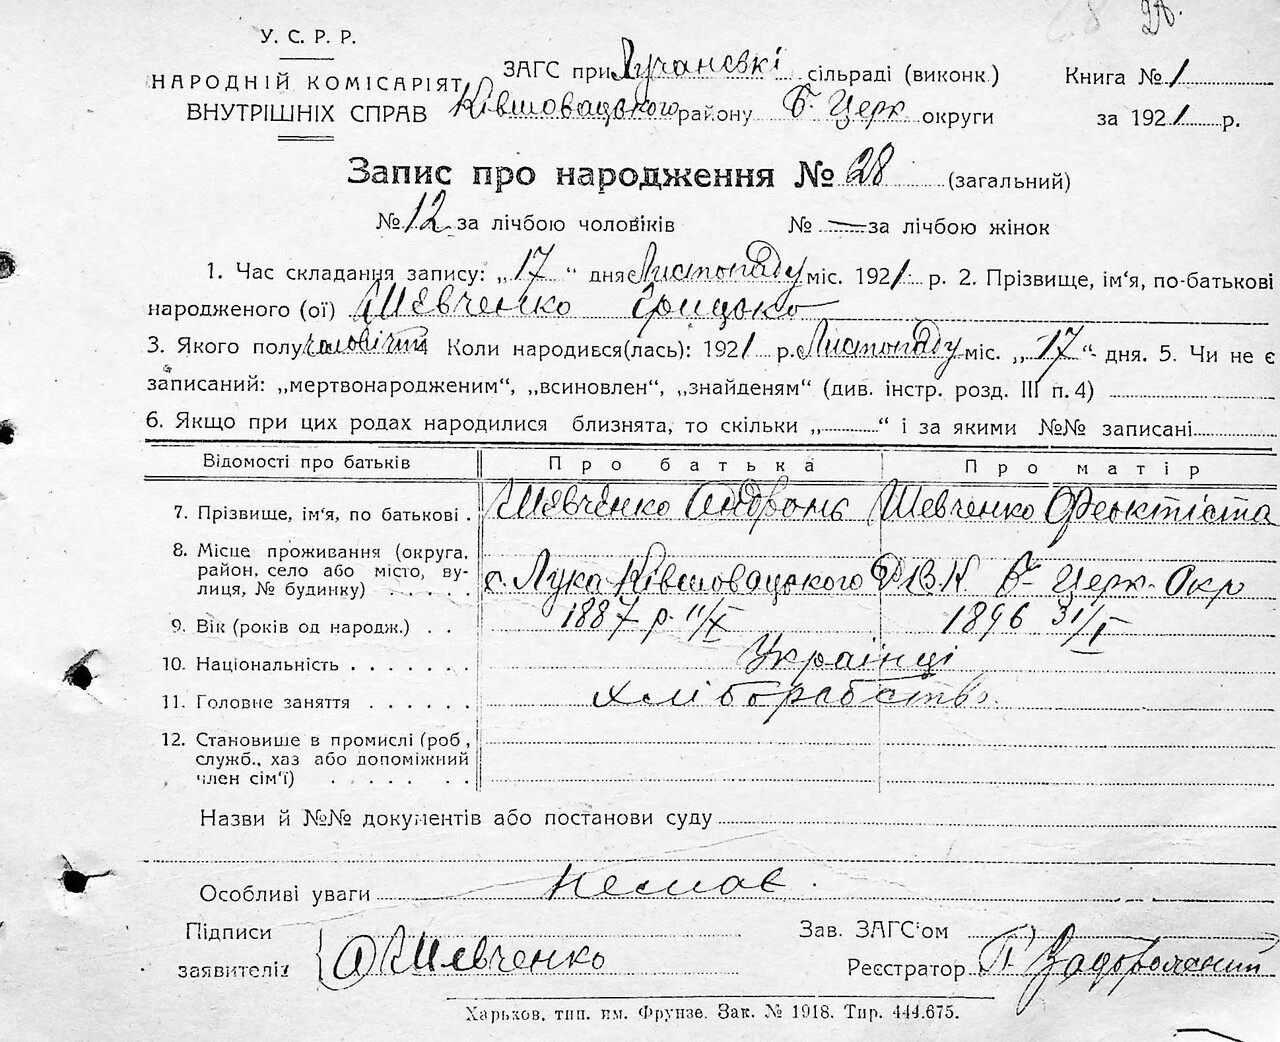 У. С. Р. Р.
НАРОДНІЙ КОМІСАРІЯТ
ВНУТРІШНІХ СПРАВ
ЗАГС при Лучанські сільраді (виконк.)
Ківшовацського району Б. Церк. округи
Книга № 1
за 1921 р.
Запис про народження № 28 (загальний)
№ 12 за лічбою чоловіків № — за лічбою жінок
1. Час складання запису: „17“ дня Листопаду міс. 1921 р. 2. Прізвище, ім‘я, по-батькові
народженого (ої) Шевченко Грицько
3. Якого полу чоловічий 4 Коли народився(лась): 1921 р. Листопаду міс. „17“ дня. 5. Чи не є
записаний: „мертвонародженим“, „всиновлен“, „знайденям“ (див. інстр. розд. III п. 4)
6. Якщо при цих родах народилися близнята, то скільки „ “ і за якими №№ записані
Відомості про батьків Про батька Про матір
7. Прізвище, ім‘я, по батькові . Шевченко Андронъ Шевченко Феоктіста
8. Місце проживання (округа,
район, село або місто, ву-
лиця, № будинку) . . . . . с. Лука Ківшовацського РВК Б-Церк. Окр
9. Вік (років од народж.) . . 1887 р. 11/X 1896 31/I
10. Національність . . . . . . . Українці
11. Головне заняття . . . . . . хліборобство.
12. Становише в промислі (роб,
служб., хаз або допоміжний
член сім‘ї) . . . . . .
Назви й №№ документів або постанови суду
Особливі уваги немає.
Підписи
заявителів А Шевченко
Зав. ЗАГС‘ом
Реєстратор П Задорожний
Харьков, тип. им. Фрунзе. Зак. № 1918. Тир. 444.675.